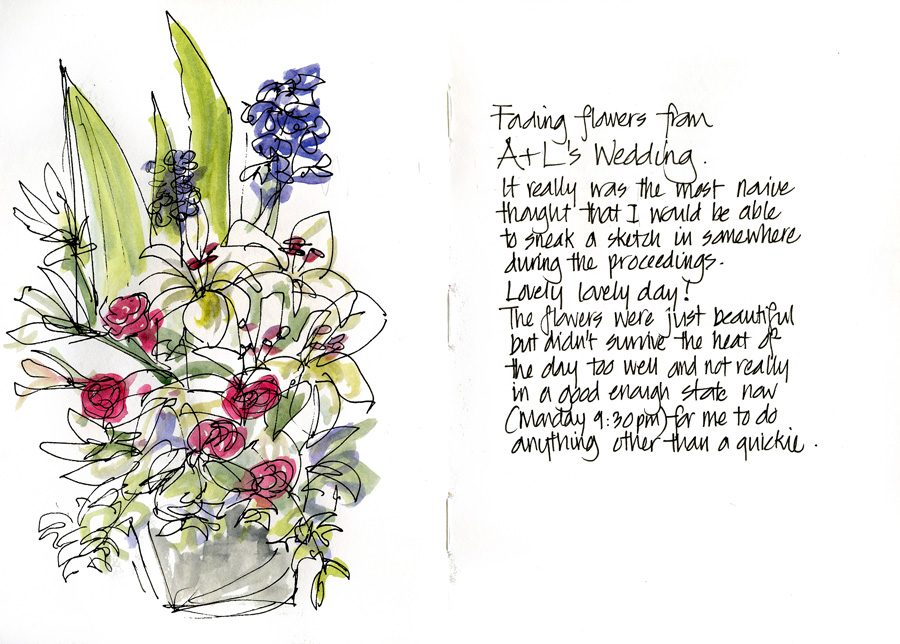 Fading flowers from
A+L's Wedding.
It really was the most naive
thought that I would be able
to sneak a sketch in somewhere
during the proceedings.
Lovely lovely day!
The flowers were just beautiful
but didn't survive the heat of
the day too well and not really
in a good enough state now
(Monday 9:30pm) for me to do
anything other than a quickie.